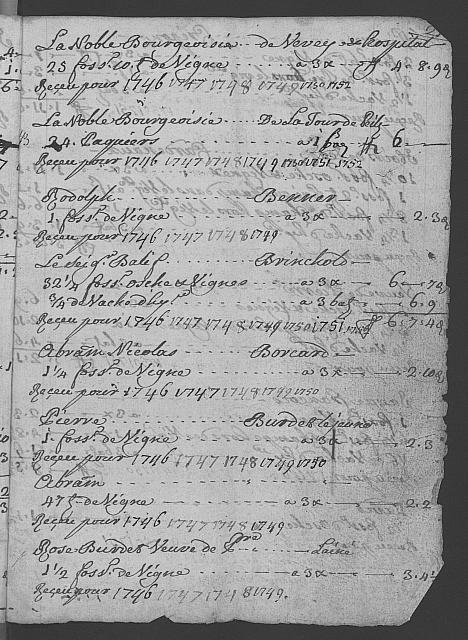 La Noble Bourgeoisie de Vevey &c hospital
23 foss.r 10 t de Vigne a 3 x ff 4. 8. 9 d
Reçeu pour 1746 1747 1748 1749 1750 1752
La Noble Bourgeoisie De La Tour de Peilz
24. Paquiers a 1 baz ff 6
Reçeu pour 1746 1747 1748 1749 1750 1751 1752
Rodolph Benner
1. foss.r de Vigne a 3 x 2. 3 d
Reçeu pour 1746 1747 1748 1749
Le Seig.r Balif Brinchot
32 1/4 foss.r &c Vignes a 3 x 6 7 d
3/4 de a 3 baz 6. 9
Reçeu pour 1746 1747 1748 1749 1750 1751 ff 6. 7. 4 d
Abram Nicolas Borcard
1 1/4 foss.r de Vigne a 3 x 2. 10
Reçeu pour 1746 1747 1748 1749 1750
Pierre Burdet le jeune
1. foss.r de Vigne a 3 x 2. 3
Reçeu pour 1746 1747 1748 1749 1750
Abram
47 t de Vigne a 3 x 2. 2
Reçeu pour 1746 1747 1748 1749
Rose Burdet Veuve de P.re
1 1/2 foss.r de Vigne a 3 x 3. 4
Reçeu pour 1746 1747 1748 1749.